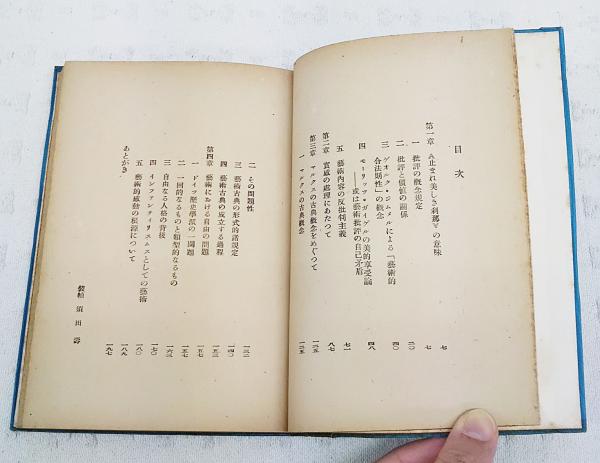 目次
第一章 〝止まれ美しき刹那〟の意味 七
一 批評の概念規定 七
二 批評と価値の關係 二〇
三 ゲオルク・ジムメルによる「藝術的合法則性」の概念 四〇
四 モーリッツ・ガイゲルの美的享受論
——或は藝術批評の自己矛盾 四八
五 藝術内容の反批判主義 七一
第二章 實感の處理にあたつて 八七
第三章 マルクスの古典概念をめぐつて 一二五
一 マルクスの古典概念 一二五
二 その問題性 一三二
三 藝術古典の形式的諸規定 一四〇
四 藝術古典の成立する過程 一五三
第四章 藝術における自由の問題 一五七
一 ドイツ歴史學派の一問題 一五七
二 一回的なるものと類型的なるもの 一六三
三 自由なる人格の背後 一七〇
四 インファンティリスムスとしての藝術 一八〇
五 藝術的感動の根源について 一八九
あとがき 一九七
裝幀 須田壽